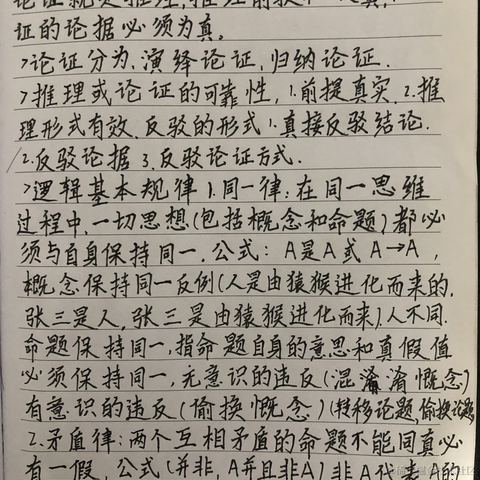 论证就是推理,推理前提不
证的论据必须为真。
>论证分为、演绎论证,归纳论证.
>推理或论证的可靠性,1.前提真实.2.推
理形式有效.反驳的形式1.真接反驳结论.
2.反驳论据3.反驳论证方式.
>逻辑基本规律1.同一律:在同一思维
过程中,一切思想(包括概念和命题)都必
须与自身保持同一,公式:A是A或A→A,
概念保持同一反例(人是由猿猴进化而来的,
张三是人,张三是由猿猴进化而来)人不同.
命题保持同一,指命题自身的意思和真假值
必须保持同一,无意识的违反(混淆概念)
有意识的违反(偷换概念)(转移论题,偷换论题
2.矛盾律:两个互相矛盾的命题不能同真必
有一假,公式(并非,A并且非A)非A代表A的